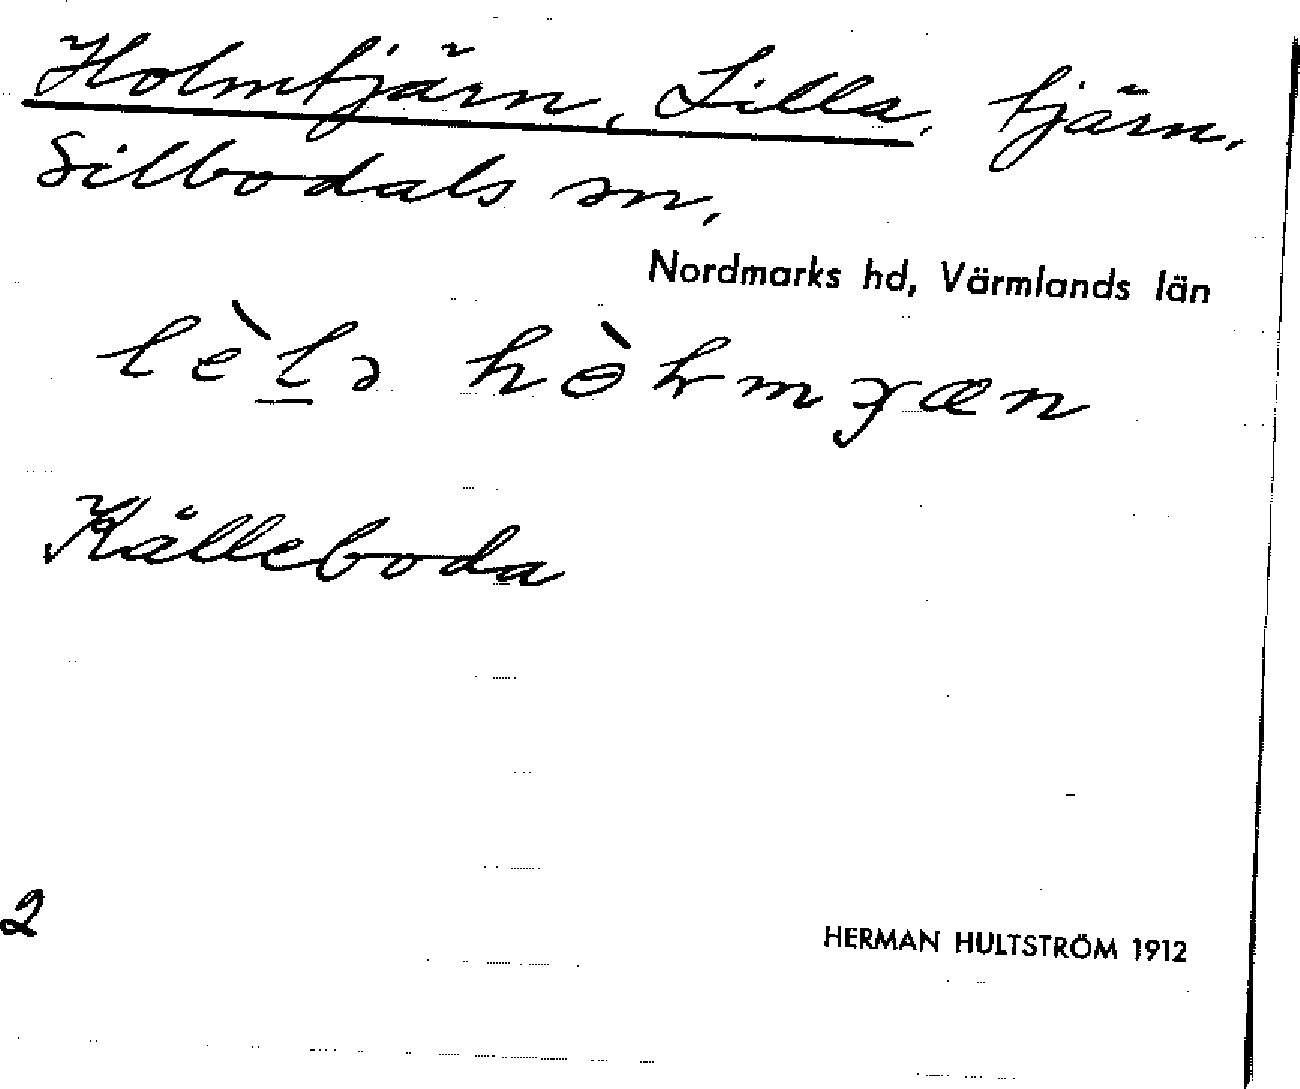 Holmtjärn, Lilla, tjärn,
Silbodals sn,
Nordmarks hd, Värmlands län
Kålleboda
2
HERMAN HULTSTRÖM 1912